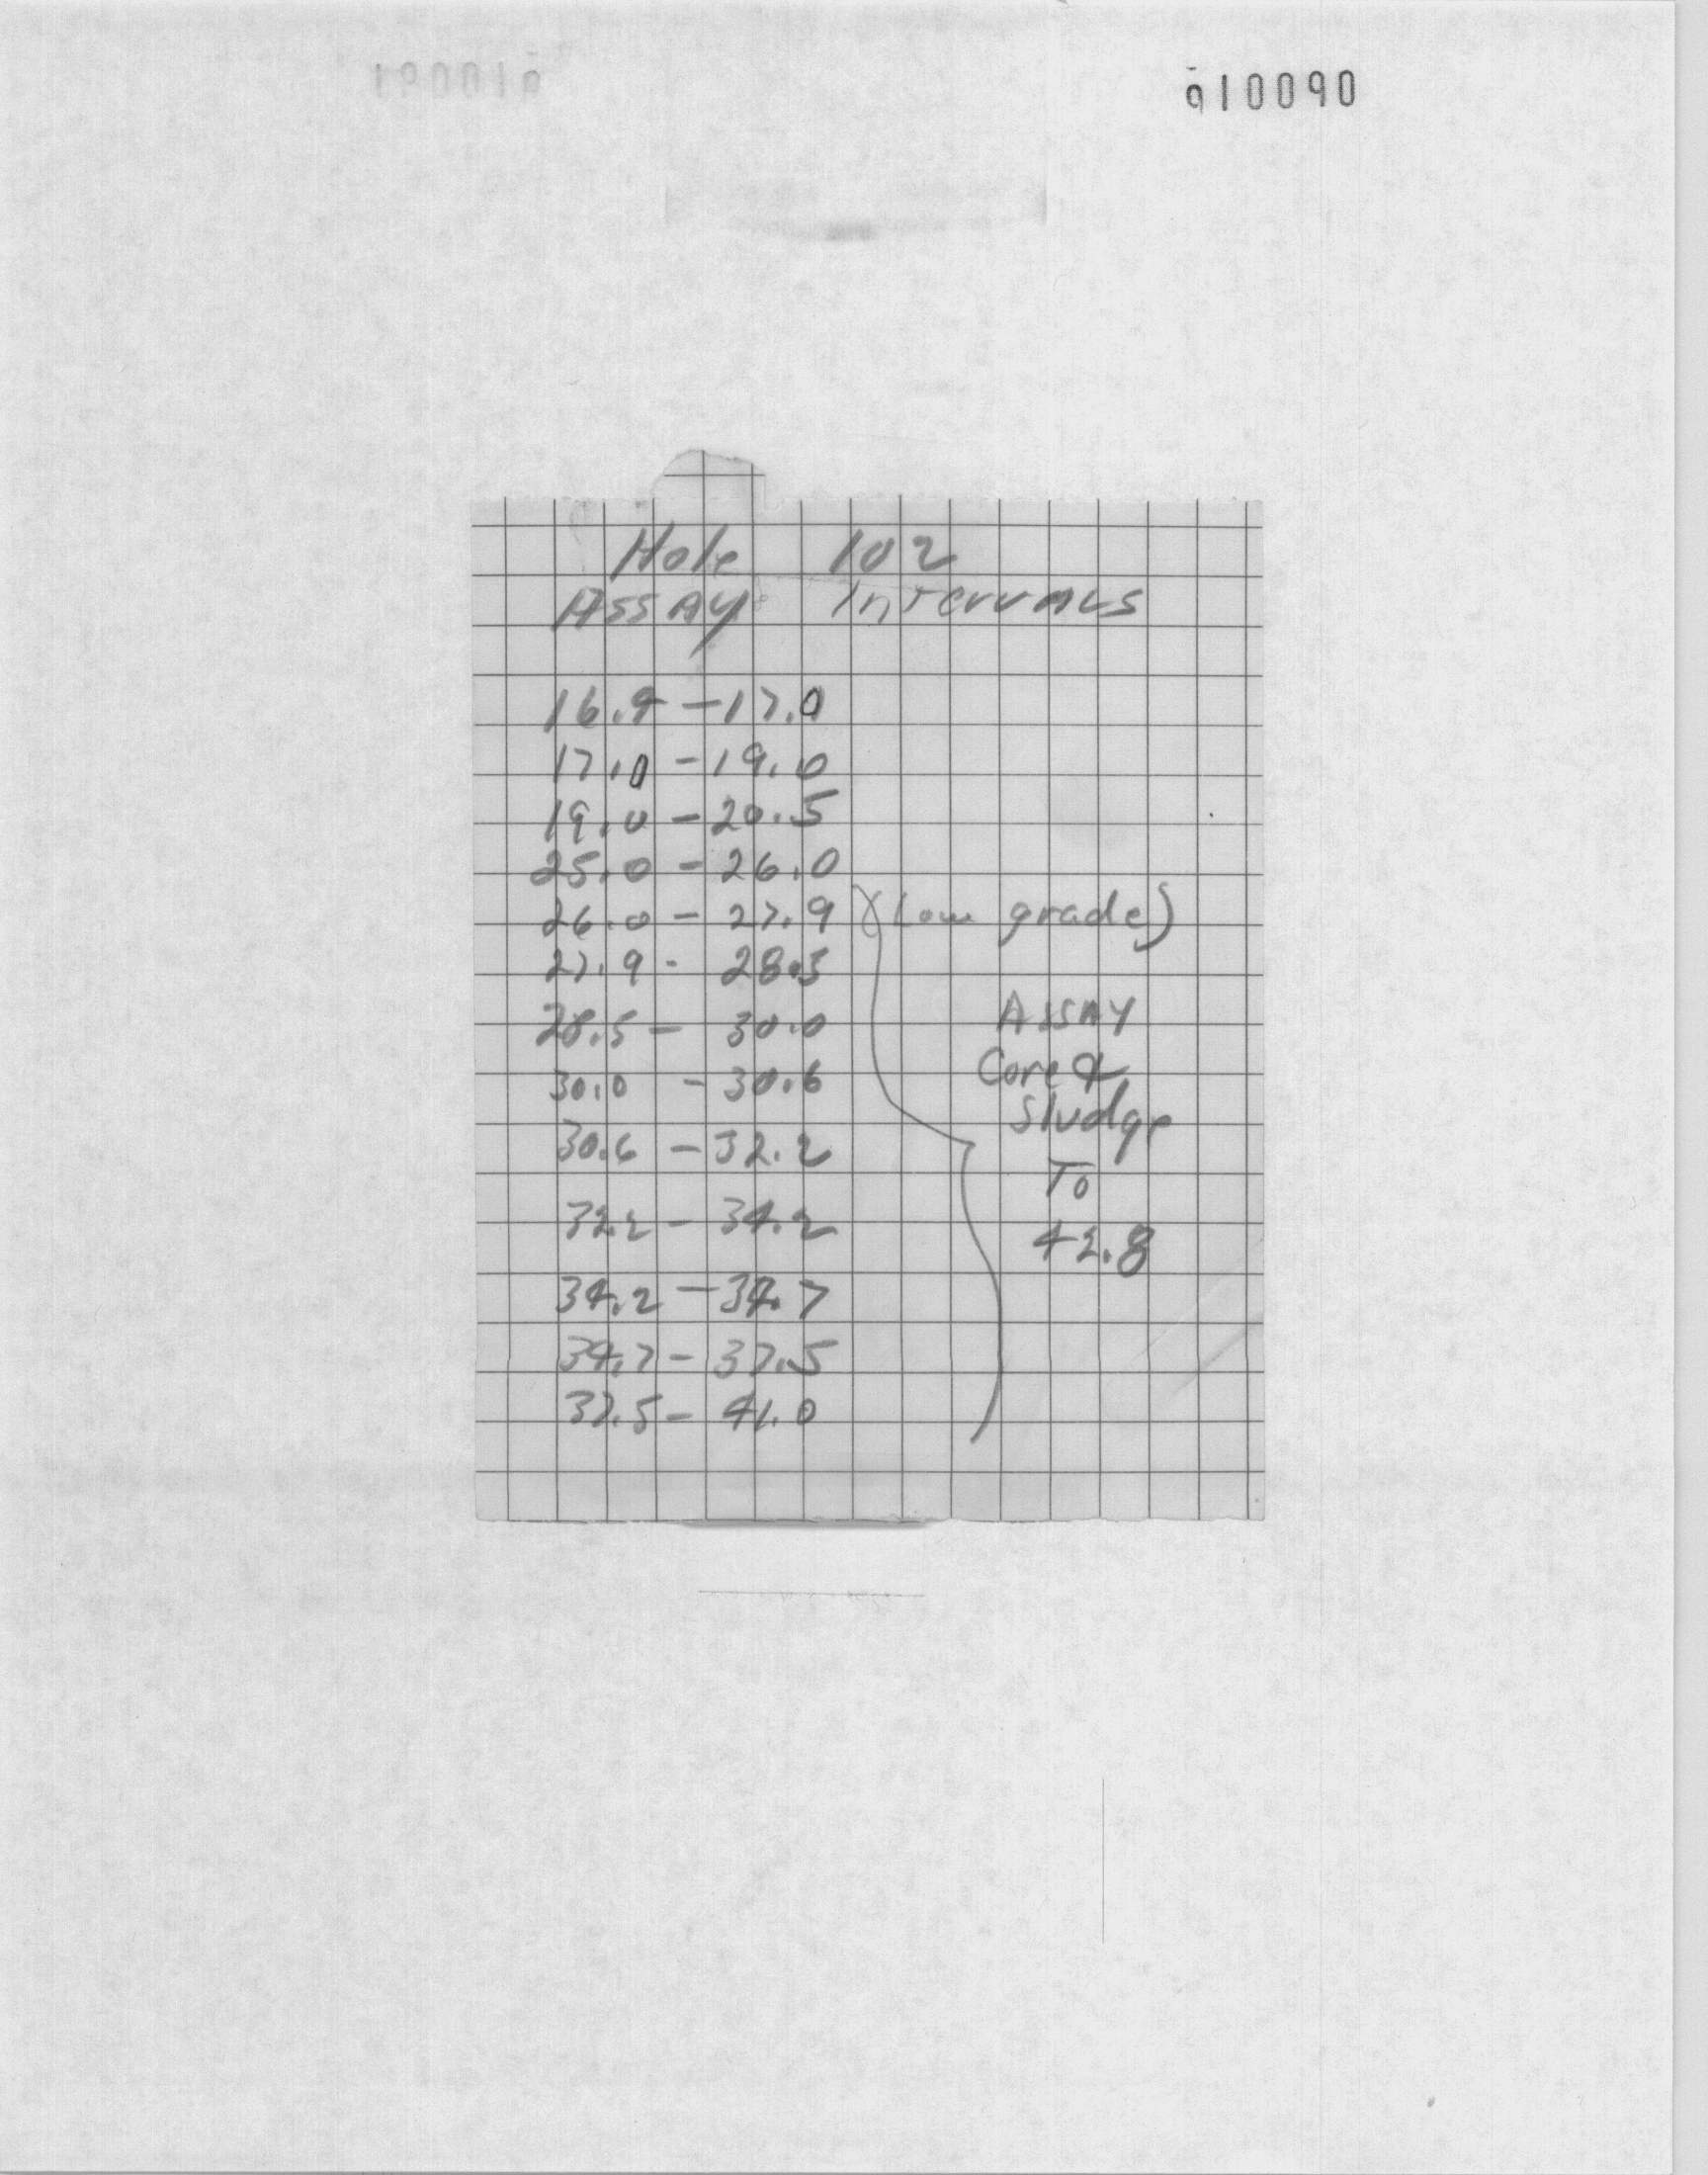 910090
Hole 102
Assay Intervals
16.9 - 17.0
17.0 - 19.0
19.0 - 20.5
25.0 - 26.0
26.0 - 27.9 (Low grade)
27.9 - 28.5
28.5 - 30.0
30.0 - 30.6
30.6 - 32.2
32.2 - 34.2
34.2 - 34.7
34.7 - 37.5
37.5 - 41.0
Assay
Core &
Sludge
To
42.8